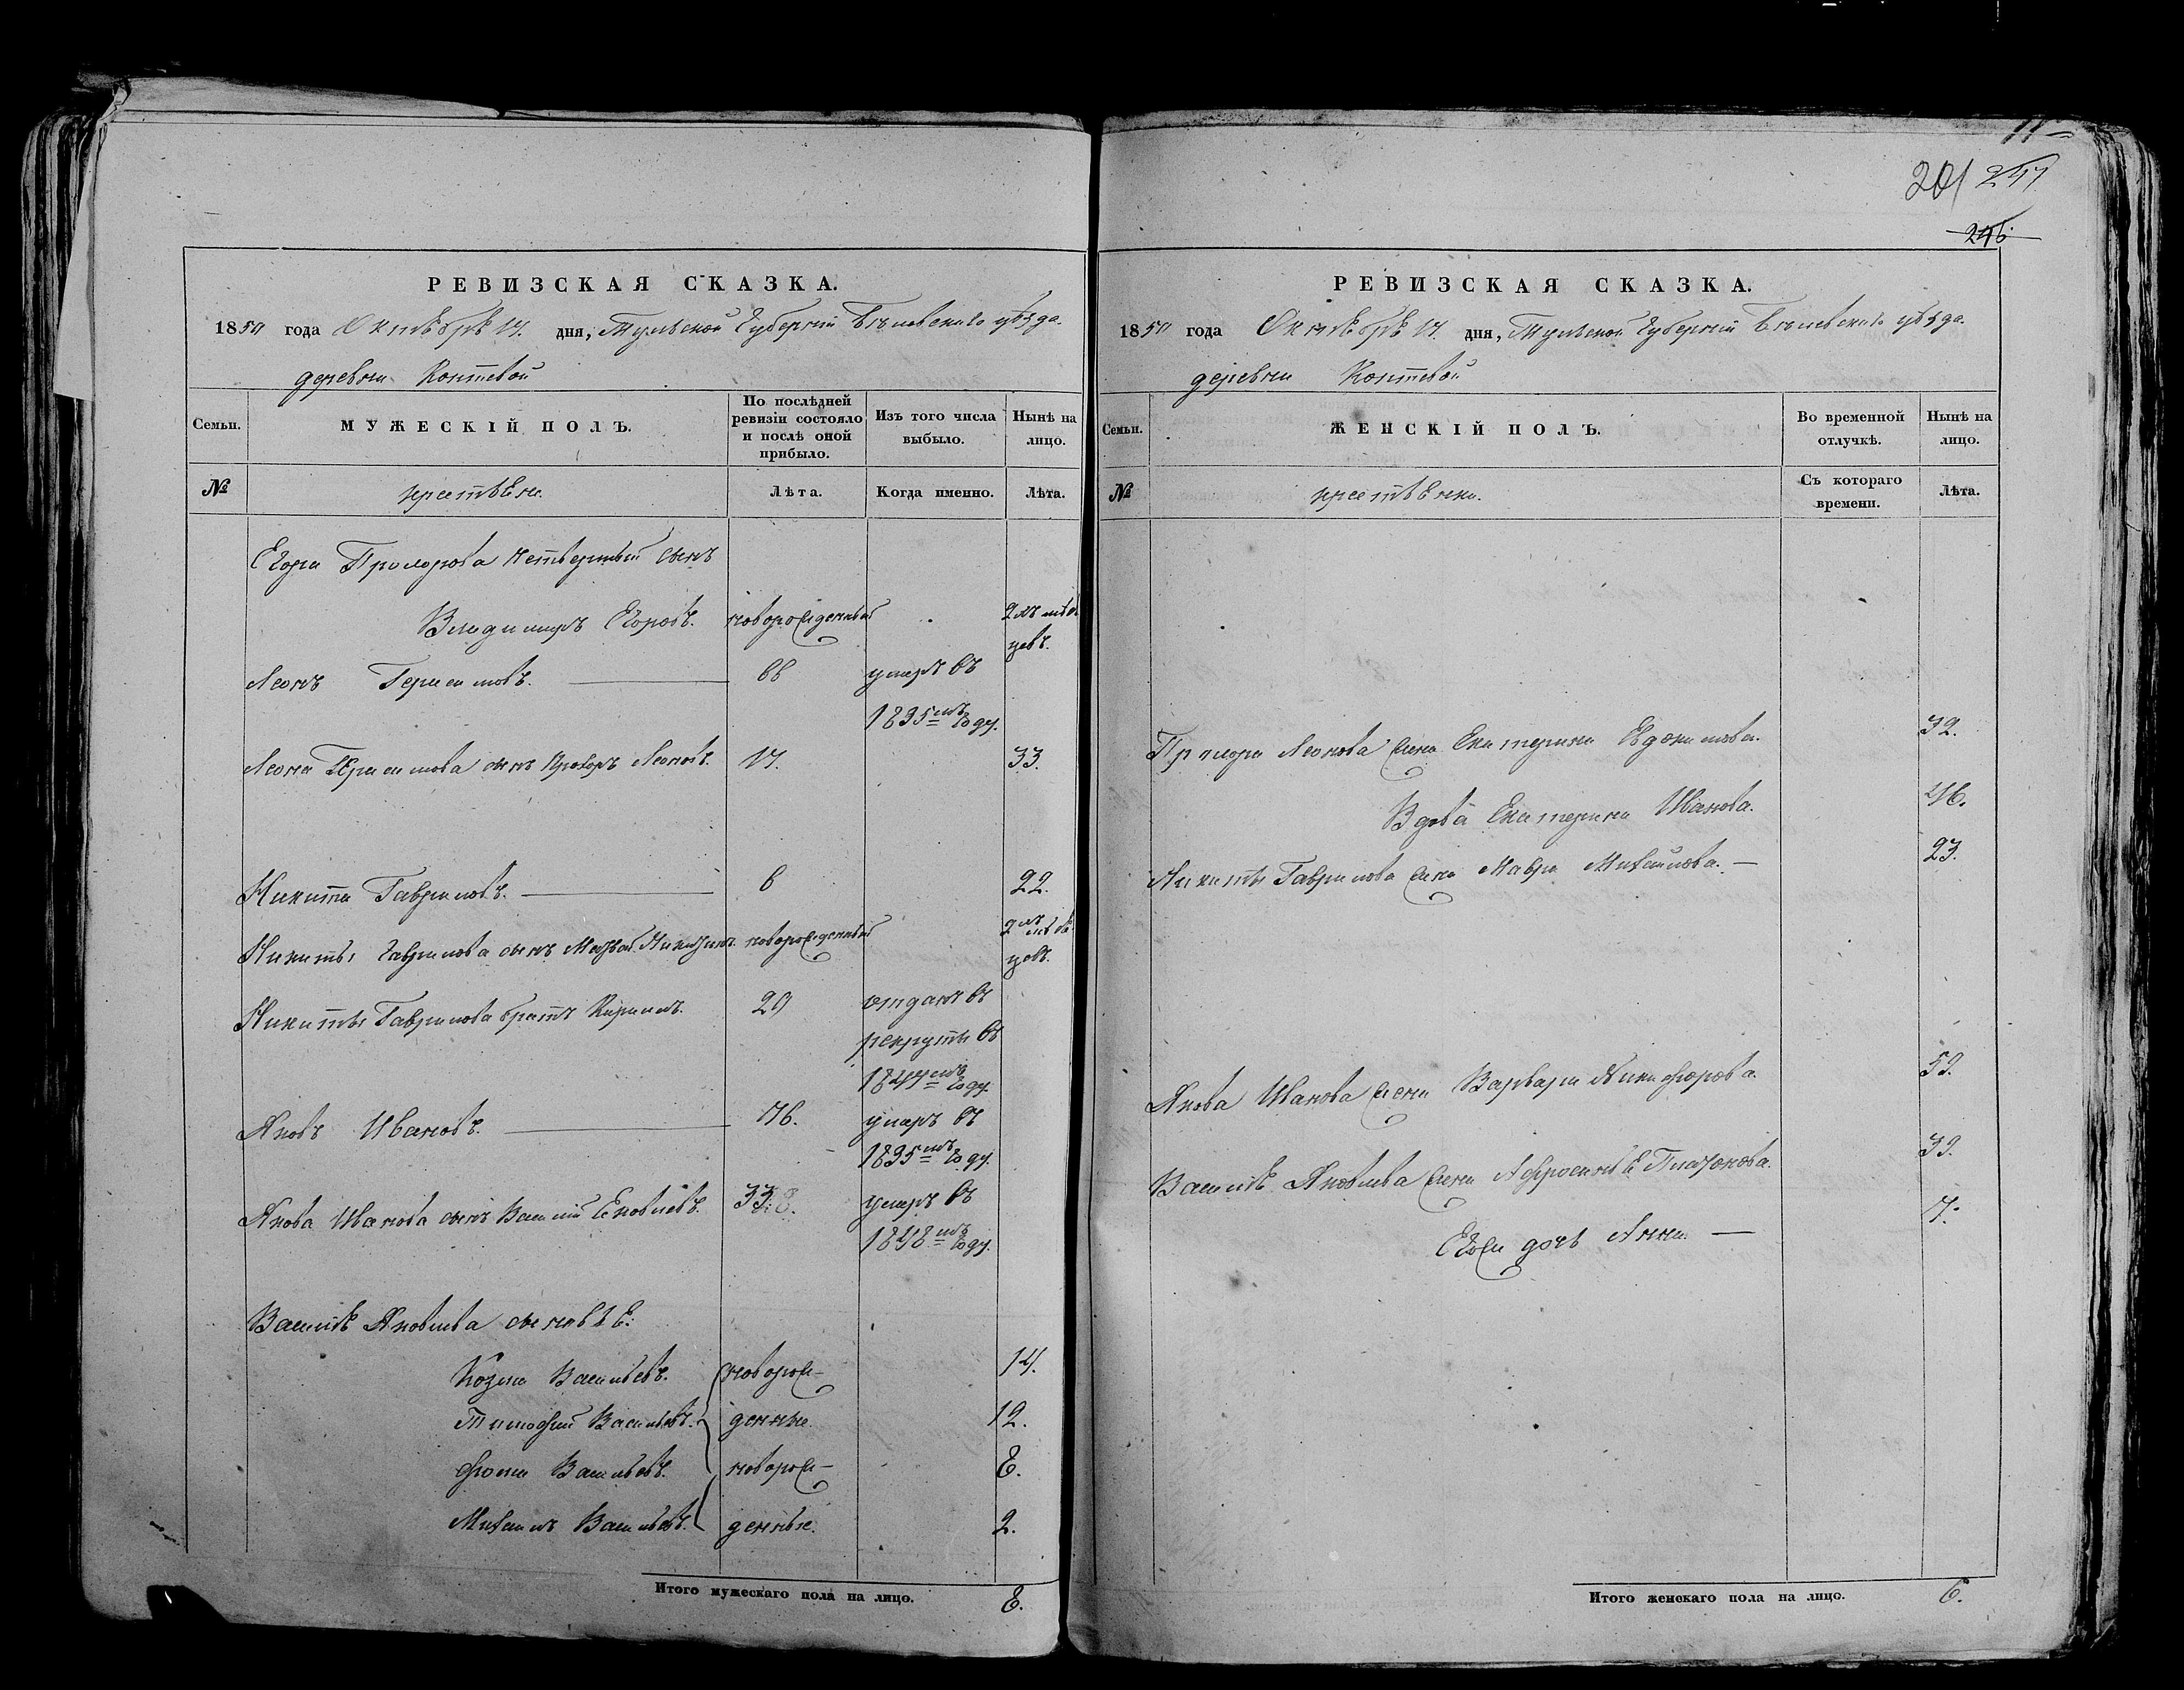 РЕВИЗСКАЯ СКАЗКА.
1850 года Октября 14. дня, Тульской Губернии Бѣлевскаго уѣзда.
деревни Коптевой
Семьи.
МУЖЕСКІЙ ПОЛЪ.
По послѣдней ревизіи состояло и послѣ оной прибыло.
Изъ того числа выбыло.
Нынѣ на лицо.
№
крестьяне.
Лѣта.
Когда именно.
Лѣта.
Егора Прохорова четвертый сынъ
Владимиръ Егоровъ. новорожденный 2 мѣсяцовъ.
Леонъ Герасимовъ. умеръ въ
1835мъ году.
Леона Герасимова сынъ Прохоръ Леоновъ. 17. 33.
Никита Гавриловъ. 6 22.
Никиты Гаврилова сынъ новорожденный 2 мѣсяцовъ.
Никиты Гаврилова братъ Кирилъ. 20 отданъ въ
рекруты въ
1844мъ году.
Яковъ Ивановъ. умеръ въ
1835мъ году.
Якова Иванова сынъ Василій Яковлевъ. 33. умеръ въ
1848мъ году.
Василья Яковлева сыновья:
Козма Васильевъ. новорож- 14.
Тимофей Васильевъ. денные. 12.
Фома Васильевъ. новорож- 8.
Михаилъ Васильевъ. денные. 2.
Итого мужескаго пола на лицо. 8.
201 247
246.
РЕВИЗСКАЯ СКАЗКА.
1850 года Октября 14. дня, Тульской Губернии Бѣлевскаго уѣзда.
деревни Коптевой
Семьи.
ЖЕНСКІЙ ПОЛЪ.
Во временной отлучкѣ.
Нынѣ на лицо.
№
крестьянки.
Съ котораго времени.
Лѣта.
Прохора Леонова жена Екатерина Евдокимова. 32.
Вдова Екатерина Иванова. 46.
Никиты Гаврилова жена Мавра Михайлова. 23.
Якова Иванова жена Варвара Никифорова. 59.
Василья Яковлева жена Афросинья Платонова. 39.
Егожа дочь Анна. 7.
Итого женскаго пола на лицо. 6.